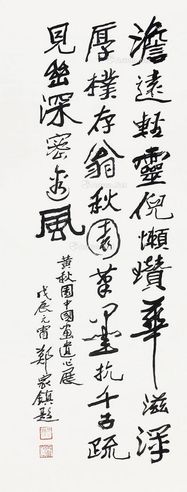 澹遠輕靈倪懶瓚華滋深
厚樸存翁秋園筆墨抗千古疏
見幽深密透風
黃秋園中國畫遺作展
戊辰元宵鄭家鎮題